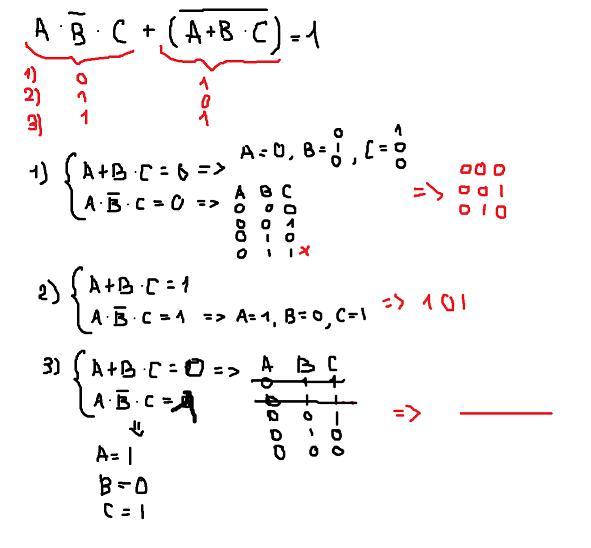 A · B̅ · C + (A+B · C)̅ = 1
1) 0 1
2) 1 0
3) 1 1
1) { A+B · C = 0 => A=0, B= 0 1 0, C= 1 0 0
A · B̅ · C = 0 =>
A B C
0 0 0
0 0 1
0 1 0
0 1 1 x
=> 0 0 0
0 0 1
0 1 0
2) { A+B · C = 1
A · B̅ · C = 1 => A=1, B=0, C=1
=> 1 0 1
3) { A+B · C = 0 =>
A · B̅ · C = 1
A B C
0 1 1
0 1 1
0 0 1
0 1 0
0 0 0
=>
⇓
A=1
B=0
C=1